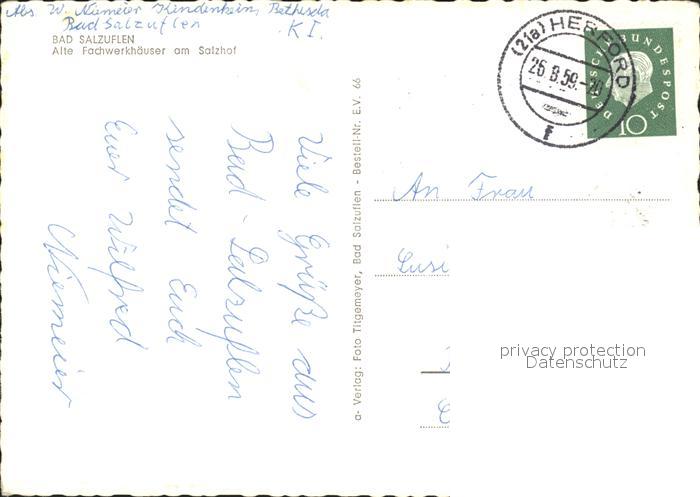 Abs. W. Niemeier Kinderheim Bethesda
Bad Salzuflen
K I.
BAD SALZUFLEN
Alte Fachwerkhäuser am Salzhof
Viele Grüße aus
Bad-Salzuflen
sendet Euch
Euer Wilfred
Niemeier
a- Verlag: Foto Titgemeyer, Bad Salzuflen - Bestell-Nr. E.V. 66
(21a) HERFORD
26.8.59.-20
f
DEUTSCHE BUNDESPOST
10
An Frau
Lusi
privacy protection
Datenschutz